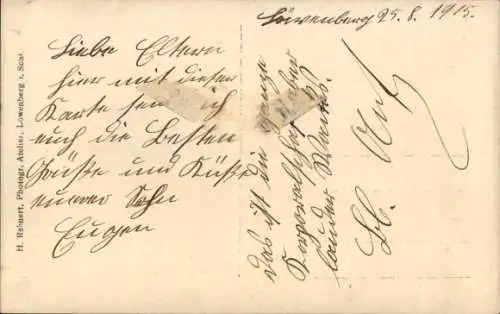 Löwenberg 25.8.1915.
Liebe Eltern
hier mit dieser
Karte sen ich
euch die Besten
Grüße und Küße
euerer Sohn
Eugen
das ist die ganze
Korporalschaft
lauder
H. Rehnert, Photogr. Atelier, Löwenberg i. Schl.